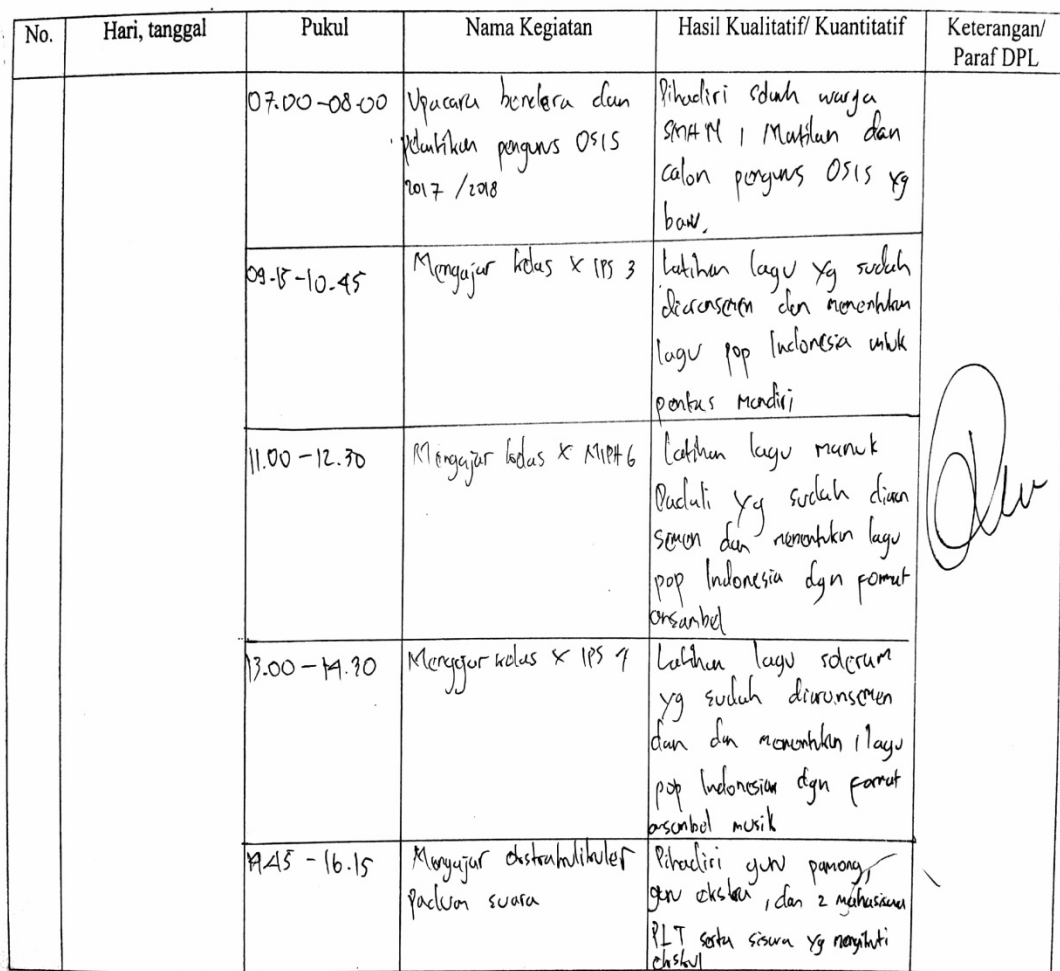 No. Hari, tanggal Pukul Nama Kegiatan Hasil Kualitatif/ Kuantitatif Keterangan/
Paraf DPL
07.00-08-00
Upacara bendera dan
pelantikan pengurus OSIS
2017 /2018
Dihadiri seluruh warga
SMAN 1 Muntilan dan
calon pengurus OSIS yg
baru.
09.15-10.45
Mengajar kelas X IPS 3
Latihan lagu yg sudah
diaransemen dan menentukan
lagu pop Indonesia untuk
pentas mandiri
11.00 - 12.30
Mengajar kelas X MIPA 6
Latihan lagu manuk
Dadali yg sudah diaran
semen dan menentukan lagu
pop Indonesia dgn format
ansambel
13.00 - 14.30
Mengajar kelas X IPS
Latihan lagu soleram
yg sudah diaransemen
dan dan menentukan 1 lagu
pop Indonesian dgn format
ansambel musik
14.45 - 16.15
Mengajar ekstrakulikuler
paduan suara
Dihadiri guru pamong,
guru ekskul, dan 2 mahasiswa
PLT serta siswa yg mengikuti
ekskul